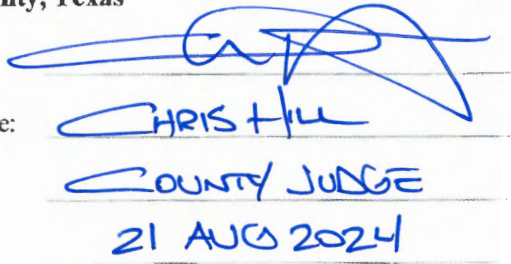 nty, Texas
e: CHRIS HILL
COUNTY JUDGE
21 AUG 2024